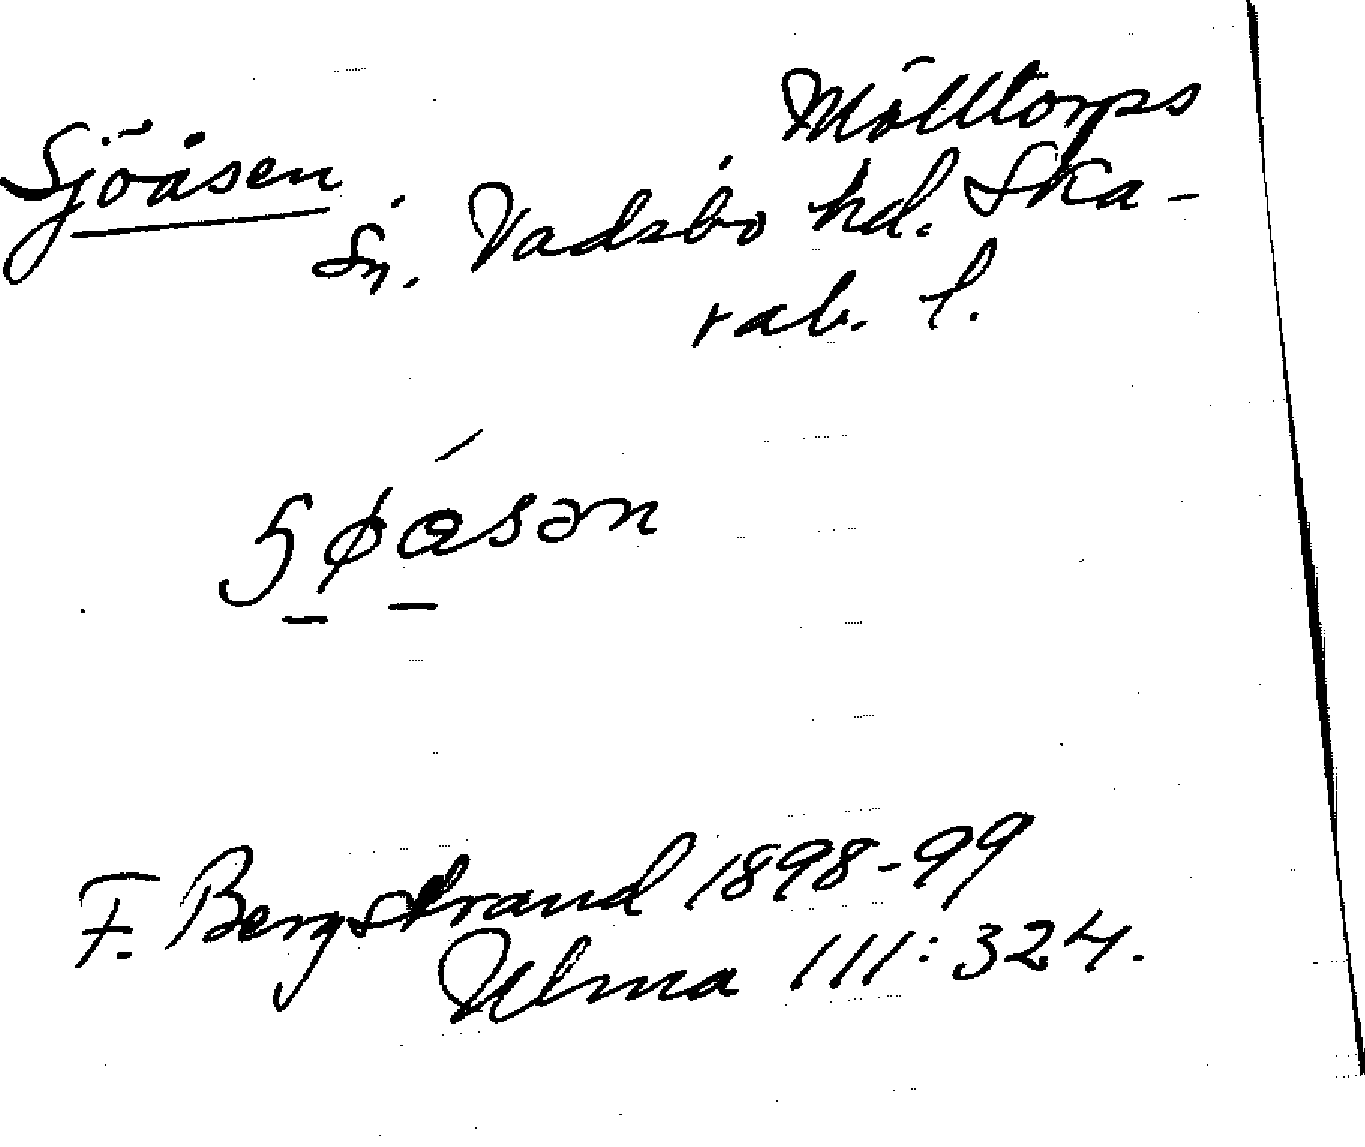 Sjöåsen
Mölltorps
sn. Vadsbo hd. Ska-
rab. l.
F. Bergstrand 1898-99
Ulma 111:324.